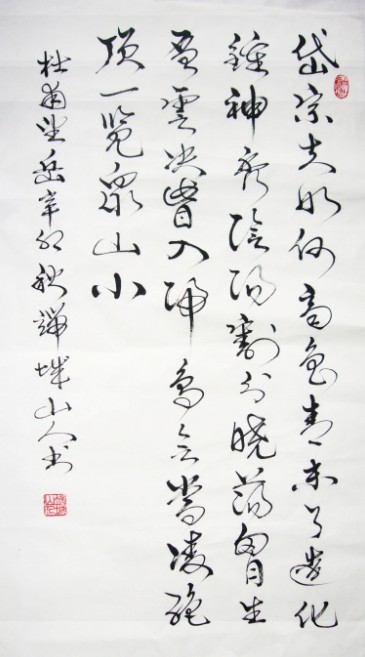 岱宗夫如何齊魯青未了造化
鍾神秀陰陽割分曉蕩胸生
曾雲決眥入歸鳥會當凌絕
頂一覽眾山小
杜甫望岳辛卯秋瑞城山人书